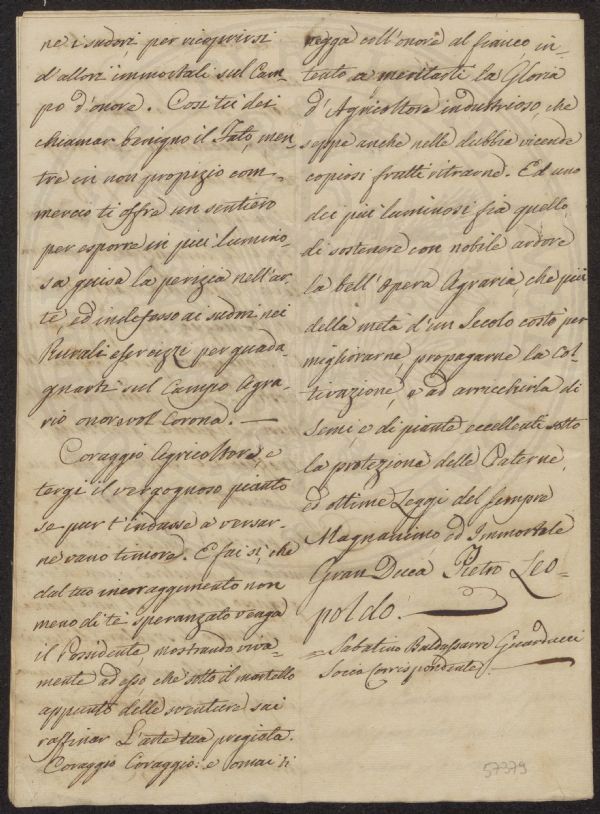 ne i sudori, per ricoprirsi
d'allori immortali sul Cam-
po d'onore. Così tu dei
chiamar benigno il Fato, men-
tre in non propizio com-
mercio ti offre un sentiero
per esporre in più lumino-
sa guisa la perizia nell'ar-
te, ed indefesso ai sudori nei
Rurali esercizzi per guada-
gnarti sul Campo Agra-
rio onorevol Corona. —
Coraggio Agricoltore, e
tergi il vergognoso pianto
se pur t'indusse a versar-
ne vano timore. E fai sì, che
dal tuo incorraggimento non
meno di te speranzato venga
il Possidente, mostrando viva-
mente ad esso, che sotto il martello
appunto delle sventure sai
raffinar L'arte tua pregiata.
Coraggio Coraggio: e omai ti
vegga coll'onore al fianco in-
tento a meritarti la Gloria
d'Agricoltore industrioso, che
seppe anche nelle dubbie vicende
copiosi frutti ritrarne. Ed uno
dei più luminosi fia quello
di sostenere con nobile ardore
la bell'Opera Agraria, che più
della metà d'un Secolo costò per
migliorarne, propagarne la Col-
tivazione, e ad arricchirla di
semi e di piante eccellenti sotto
la protezione delle Paterne,
ed ottime Leggi del sempre
Magnanimo, ed Immortale
Gran Duca Pietro Leo-
poldo.
= Sabatino Baldassarre Guarducci
Socio Corrispondente.
57379